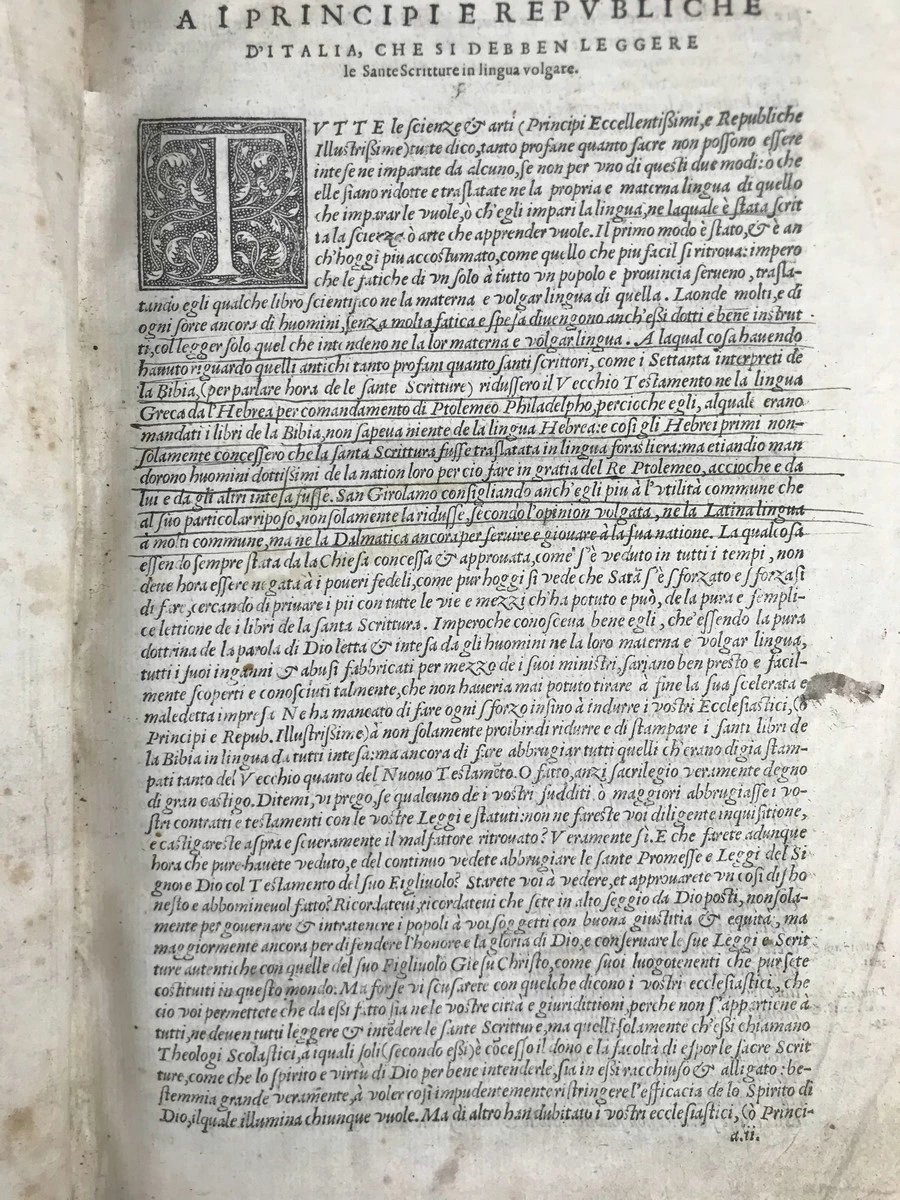 A I PRINCIPI E REPVBLICHE
D'ITALIA, CHE SI DEBBEN LEGGERE
le Sante Scritture in lingua volgare.
TVTTE le scienze & arti (Principi Eccellentißimi, e Republiche
Illustrißime) tutte dico, tanto profane quanto sacre non possono essere
intese ne imparate da alcuno, se non per vno di questi due modi: ò che
elle siano ridotte e traslatate ne la propria e materna lingua di quello
che imparar le vuole, ò ch'egli impari la lingua, ne laquale è stata scrit
ta la scienze ò arte che apprender vuole. Il primo modo è stato, & è an
ch'hoggi piu accostumato, come quello che piu facil si ritroua: impero
che le fatiche di vn solo à tutto vn popolo e prouincia serueno, trasla-
tando egli qualche libro scientifico ne la materna e volgar lingua di quella. Laonde molti, e di
ogni sorte ancora di huomini, senza molta fatica e spesa diuengono anch'eßi dotti e bene instrut
ti, col legger solo quel che intendeno ne la lor materna e volgar lingua. A laqual cosa hauendo
hauuto riguardo quelli antichi tanto profani quanto santi scrittori, come i Settanta interpreti de
la Bibia, (per parlare hora de le sante Scritture) ridussero il Vecchio Testamento ne la lingua
Greca da l'Hebrea per comandamento di Ptolemeo Philadelpho, percioche egli, alquale erano
mandati i libri de la Bibia, non sapeua niente de la lingua Hebrea: e cosi gli Hebrei primi non-
solamente concessero che la santa Scrittura fusse traslatata in lingua forastiera: ma etiandio man
dorono huomini dottißimi de la nation loro per cio fare in gratia del Re Ptolemeo, accioche e da
lui e da gli altri intesa fusse. San Girolamo consigliando anch'egli piu à l'vtilità commune che
al suo particular riposo, non solamente la ridusse, secondo l'opinion volgata, ne la Latina lingua
à molti commune, ma ne la Dalmatica ancora per seruire e giouare à la sua natione. La qual cosa
essendo sempre stata da la Chiesa concessa & approuata, come s'è veduto in tutti i tempi, non
deue hora essere negata à i poueri fedeli, come pur hoggi si vede che Satã s'è sforzato e sforzasi
di fare, cercando di priuare i pii con tutte le vie e mezzi ch'ha potuto e può, de la pura e sempli-
ce lettione de i libri de la santa Scrittura. Imperoche conosceua bene egli, che essendo la pura
dottrina de la parola di Dio letta & intesa da gli huomini ne la loro materna e volgar lingua,
tutti i suoi inganni & abusi fabbricati per mezzo de i suoi ministri, sariano ben presto e facil-
mente scoperti e conosciuti talmente, che non haueria mai potuto tirare à fine la sua scelerata e
maledetta impresa Ne ha mancato di fare ogni sforzo insino à indurre i vostri Ecclesiastici, (ò
Principi e Repub. Illustrißime) à non solamente proibir di ridurre e di stampare i santi libri de
la Bibia in lingua da tutti intesa: ma ancora di fare abbrugiar tutti quelli ch'erano digia stam-
pati tanto del Vecchio quanto del Nuouo Testamẽto. O fatto, anzi sacrilegio veramente degno
di gran castigo. Ditemi, vi prego, se qualcuno de i vostri sudditi ò maggiori abbrugiasse i vo-
stri contratti e testamenti con le vostre Leggi e statuti: non ne fareste voi diligente inquisitione,
e castigareste aspra e seueramente il malfattore ritrouato? Veramente si. E che farete adunque
hora che pure hauete veduto, e del continuo vedete abbrugiare le sante Promesse e Leggi del Si
gnore Dio col Testamento del suo Figliuolo? Starete voi à vedere, et approuarete vn cosi disho
nesto e abbomineuol fatto? Ricordateui, ricordateui che sete in alto seggio da Dio posti, non sola-
mente per gouernare & intratenere i popoli à voi soggetti con buona giustitia & equità, ma
maggiormente ancora per difendere l'honore e la gloria di Dio, e conseruare le sue Leggi e Scrit
ture autentiche con quelle del suo Figliuolo Giesu Christo, come suoi luogotenenti che pur sete
costituiti in questo mondo. Ma forse vi scusarete con quelche dicono i vostri ecclesiastici, che
cio voi permettete che da eßi fatto sia ne le vostre città e giuridittioni, perche non s'appartiene à
tutti, ne deuen tutti leggere & intẽdere le sante Scritture, ma quelli solamente ch'eßi chiamano
Theologi Scolastici, à iquali soli (secondo eßi) è cõcesso il dono e la facoltà di espor le sacre Scrit
ture, come che lo spirito e virtù di Dio per bene intenderle, sia in eßi racchiuso & alligato: be-
stemmia grande veramente, à voler cosi impudentemente ristringere l'efficacia de lo Spirito di
Dio, ilquale illumina chiunque vuole. Ma di altro han dubitato i vostri ecclesiastici, (ò Princi-
a.ii.